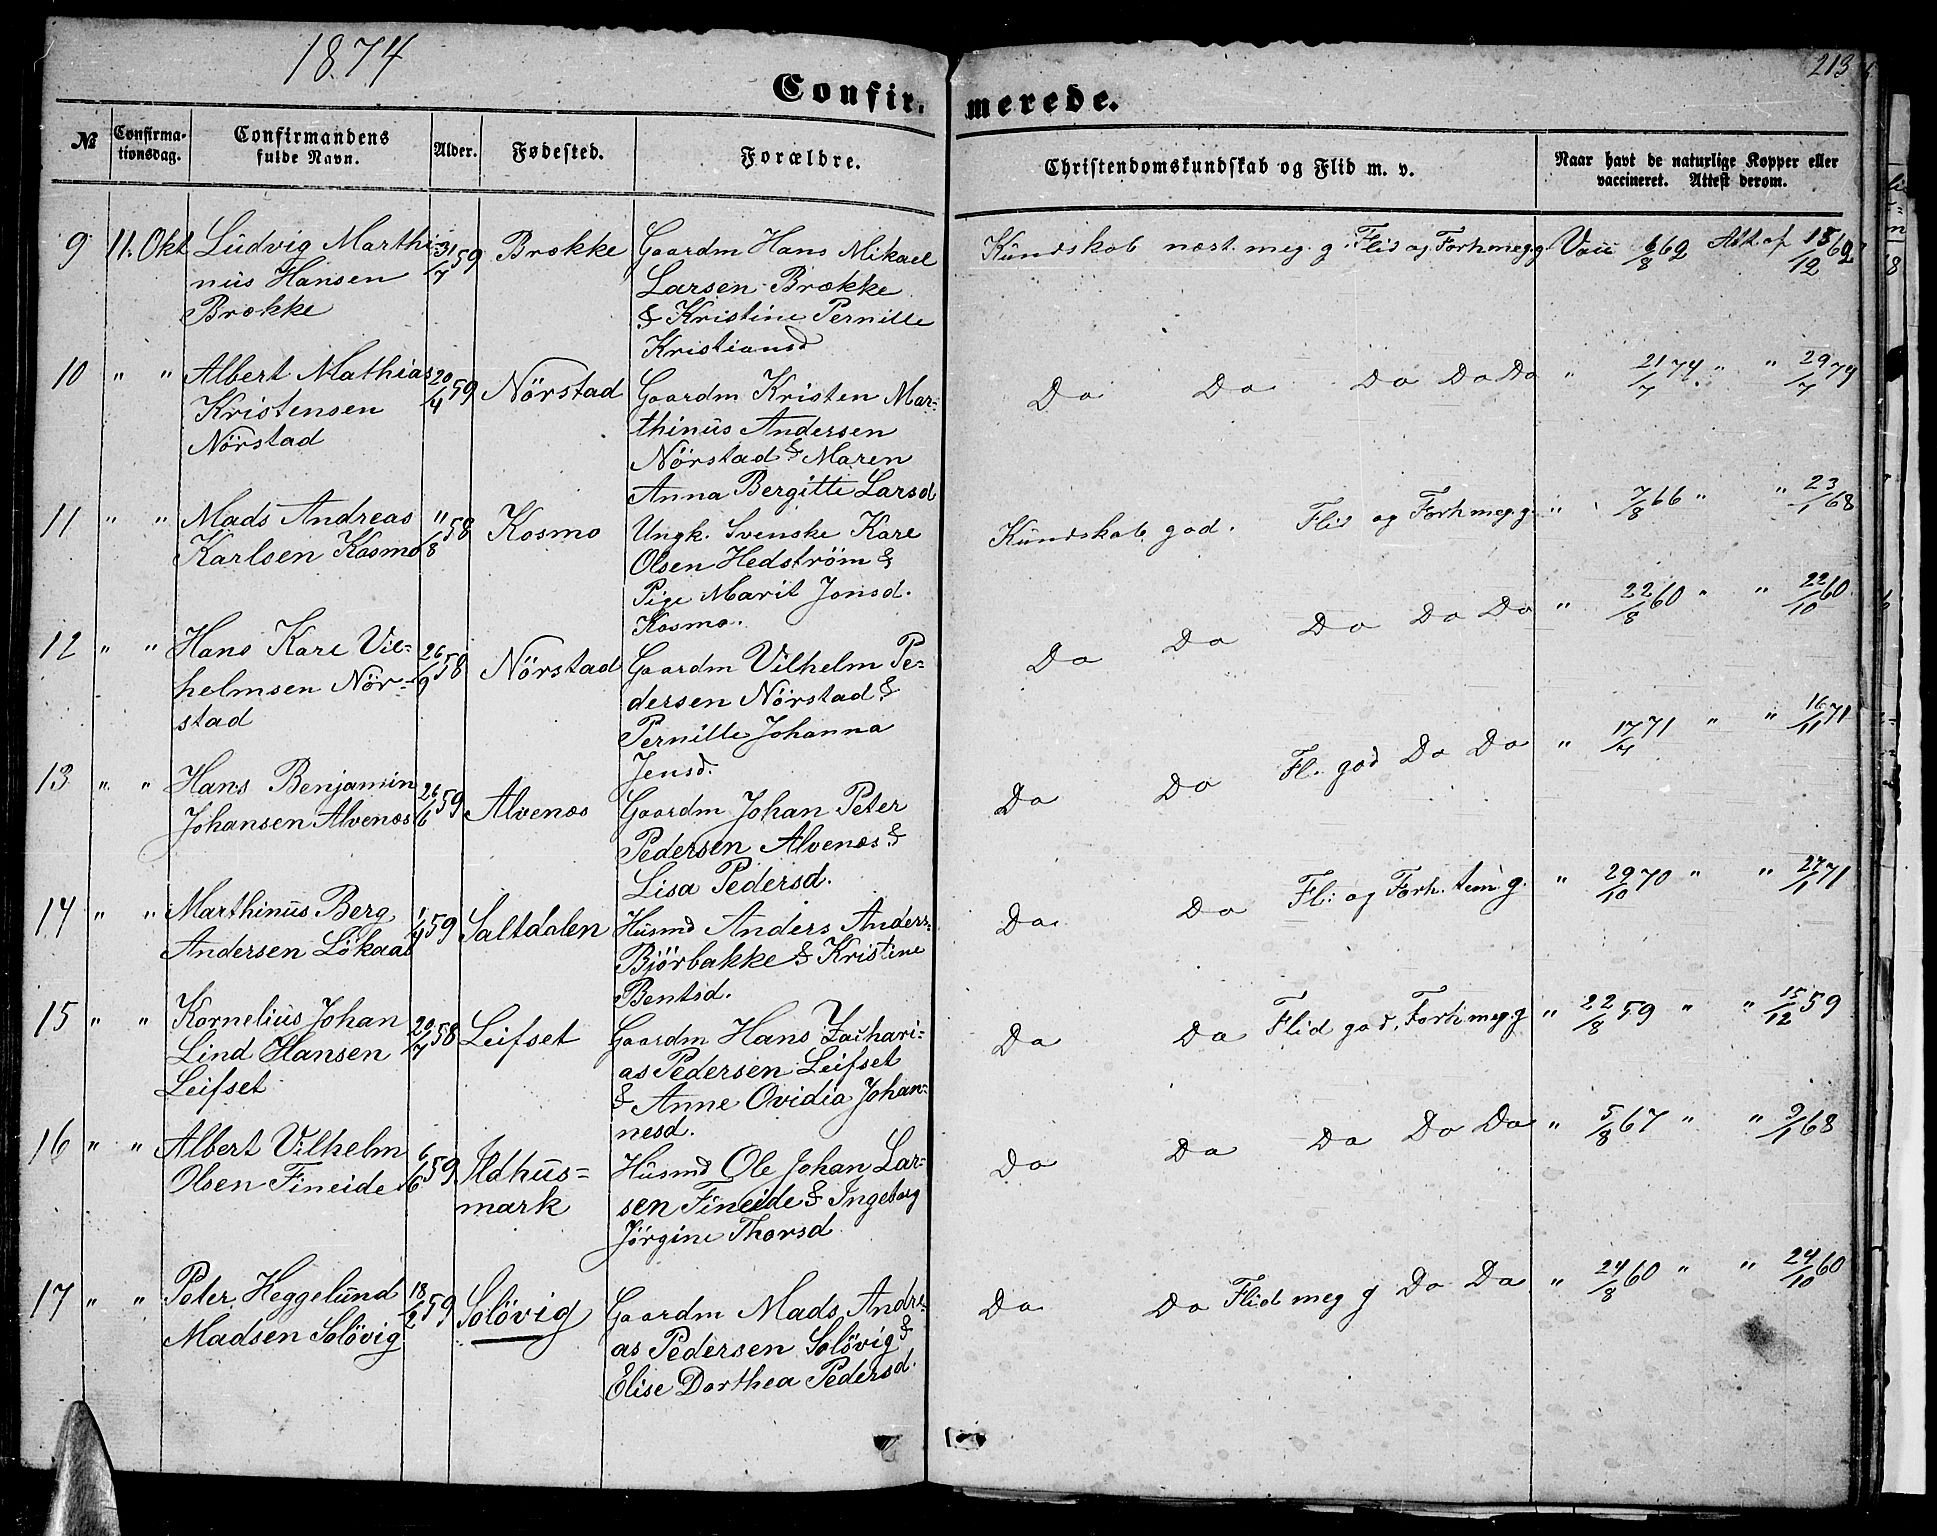 1874
213
Confir, merede.
№ Confirma- Confirmandens Alder. Fødested. Forældre. Christendomskundskab og Flid m. v. Naar havt de naturlige Kopper eller
tionsdag. fulde Navn. vaccineret. Attest derom.
9 11. Okt Ludvig Marthi- 31/7 59 Brække Gaardm Hans Mikael Kundskab næst. meg. g. Flid og Forh meg. g. Vacc 6/8 62 Att. af 18/12 62
nus Hansen Larsen Brække
Brække & Kristine Pernille
Kristiansd
10 " " Albert Mathias 20/4 59 Nörstad Gaardm Kristen Mar- Do Do Do Do Do " 21/7 74 " " 29/7 74
Kristensen thinus Andersen
Nörstad Nörstad & Maren
Anna Bergitte Larsd
11 " " Mads Andreas 11/8 58 Kosmo Ungk. Svenske Karl Kundskab god. Flid og Forh meg. g. " 7/8 66 " " 23/1 68
Karlsen Kosmo Olsen Hedström &
Pige Marit Jonsd.
Kosmo.
12 " " Hans Karl Vil- 26/9 58 Nörstad Gaardm Vilhelm Pe- Do Do Do Do Do " 22/8 60 " " 22/10 60
helmsen Nör- dersen Nörstad &
stad Pernille Johanna
Jensd.
13 " " Hans Benjamin 26/6 59 Alvenæs Gaardm Johan Peter Do Do Fl. god Do Do " 17/4 71 " " 16/11 71
Johansen Alvenæs Pedersen Alvenæs &
Lisa Pedersd.
14 " " Marthinus Berg 1/4 59 Saltdalen Husmd Anders Anders- Do Do Fl: og Forh. tem. g. " 29/10 70 " " 27/1 71
Andersen Lökaas Björbakke & Kristine
Bentsd.
15 " " Kornelius Johan 20/7 58 Leifset Gaardm Hans Zachari- Do Do Flid god, Forh meg. g " 22/8 59 " " 15/12 59
Lind Hansen as Pedersen Leifset
Leifset & Anne Ovidia Johan-
nesd.
16 " " Albert Vilhelm 6/6 59 Ildhus- Husmd Ole Johan Lar- Do Do Do Do Do " 5/8 67 " " 9/1 68
Olsen Fineide mark sen Fineide & Ingeborg
Jörgine Thorsd
17 " " Peter Heggelund 18/2 59 Solövig Gaardm Mads Andre- Do Do Flid meg g Do Do " 24/8 60 " " 24/10 60
Madsen Solövig as Pedersen Solövig &
Elise Dorthea Pedersd.